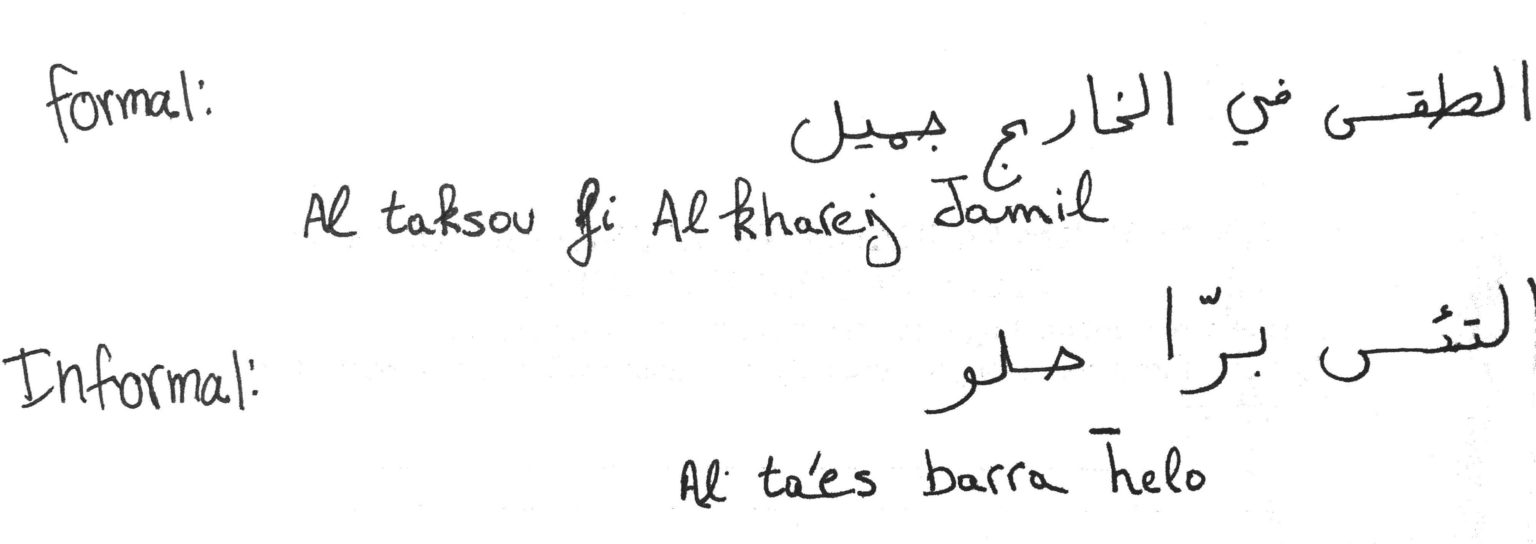 formal: الطقس في الخارج جميل
Al taksou fi Al kharej Jamil
Informal: التئس برّا حلو
Al ta'es barra h̄elo